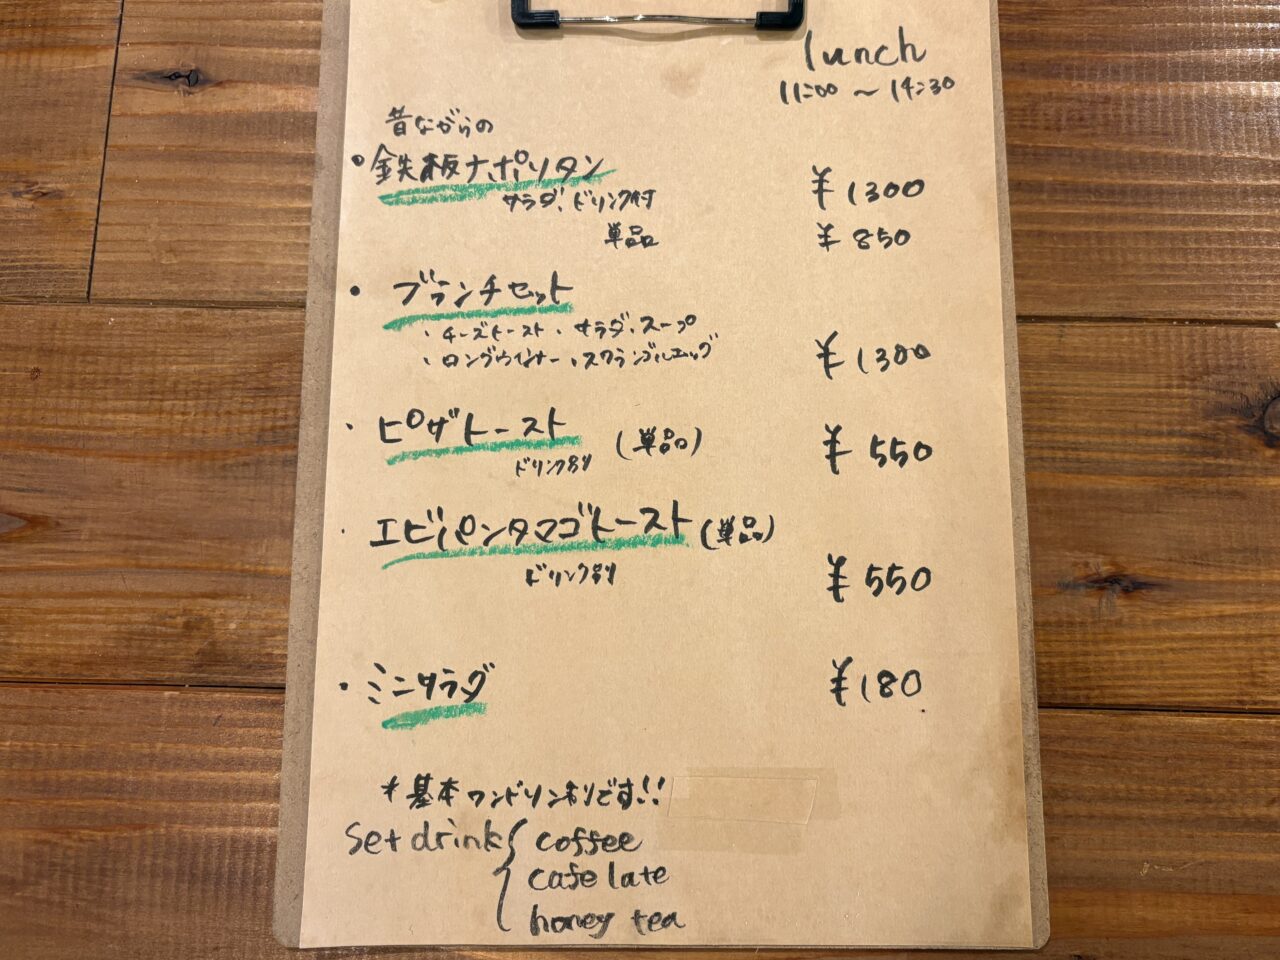 lunch
11:00 ~ 14:30
昔ながらの
・鉄板ナポリタン ¥1300
サラダ、ドリンク付
単品 ¥850
・ブランチセット
・チーズトースト ・サラダ、スープ
・ロングウインナー ・スクランブルエッグ ¥1300
・ピザトースト (単品) ¥550
ドリンク別
・エビパンタマゴトースト (単品)
ドリンク別 ¥550
・ミニサラダ ¥180
*基本ワンドリン制です!!
set drink { coffee
cafe late
honey tea